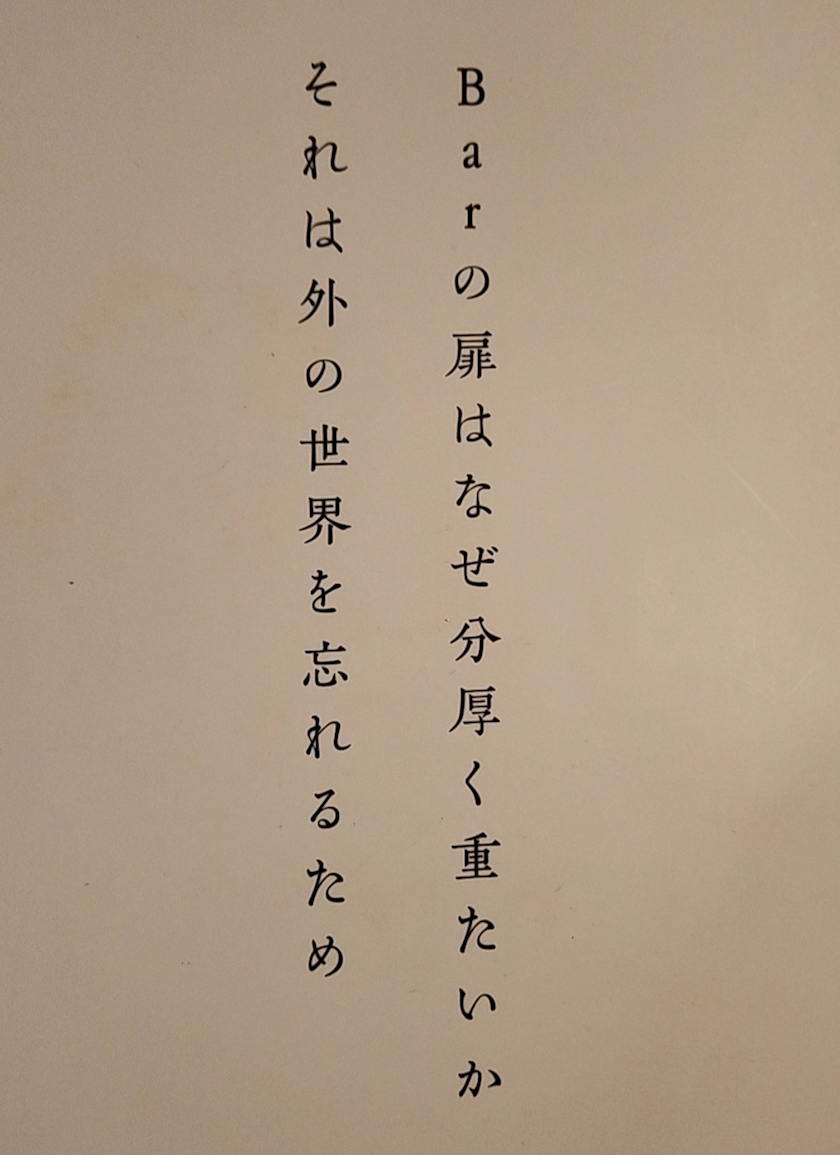 Barの扉はなぜ分厚く重たいか
それは外の世界を忘れるため